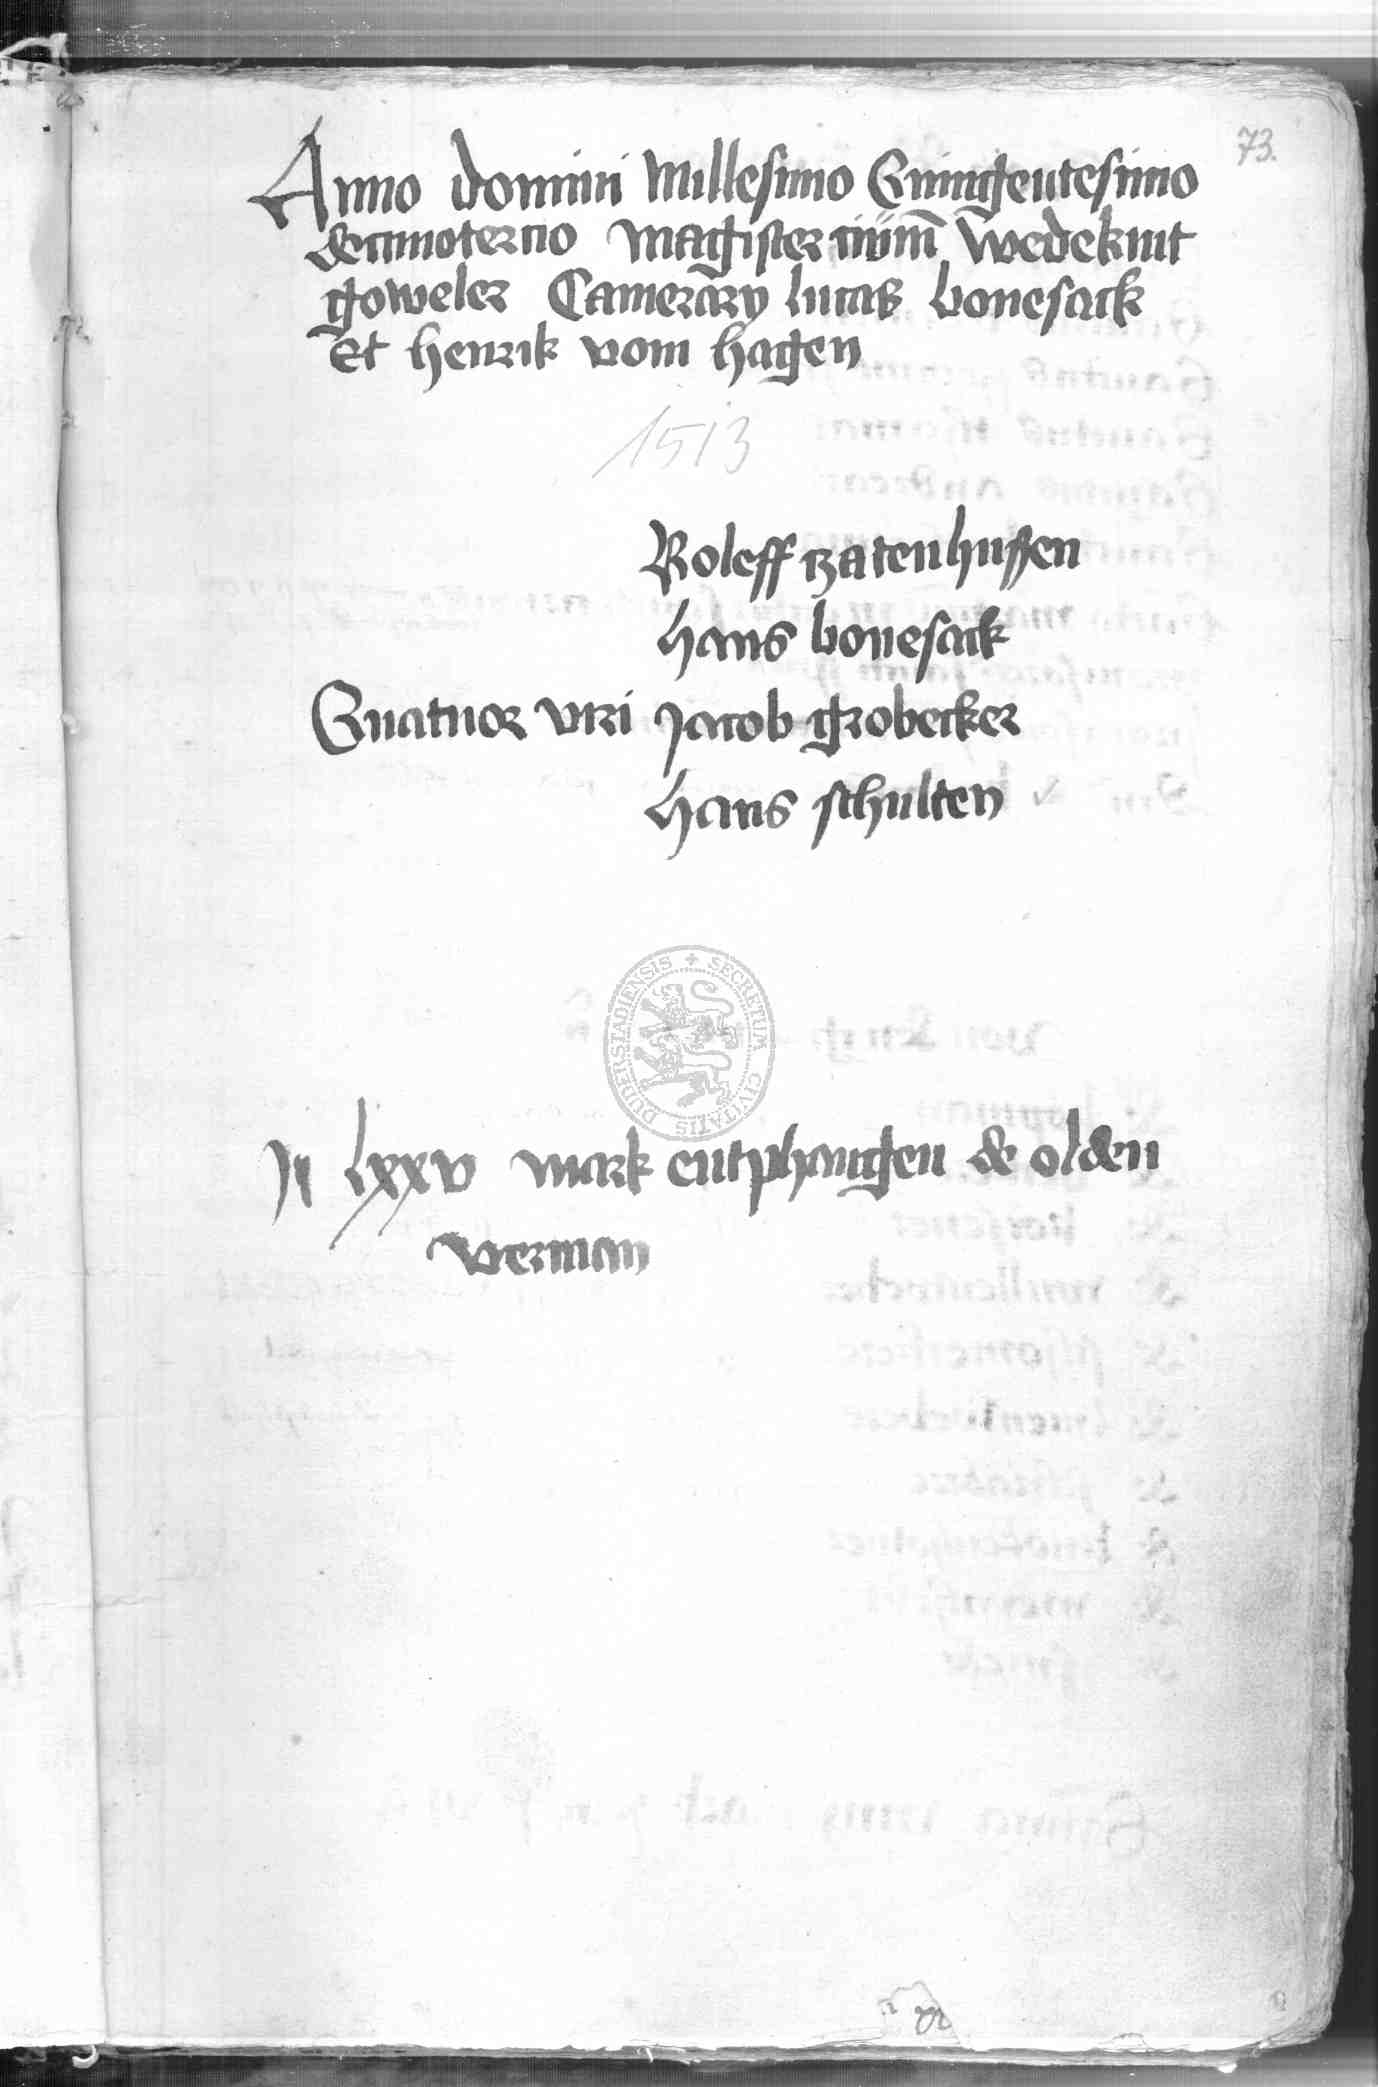 73.
Anno domini Millesimo Quingentesimo
decimotercio Magister civium Wedekint
goweler Camerary lucas bonesack
Et henrik vom hagen
1513
Roleff tzatenhussen
hans bonesack
Quatuor viri Jacob grobecker
hans schulten
DUDERSTADIENSIS + SECRETUM CIVITATIS
lxxv mark entphangen de olden
werman